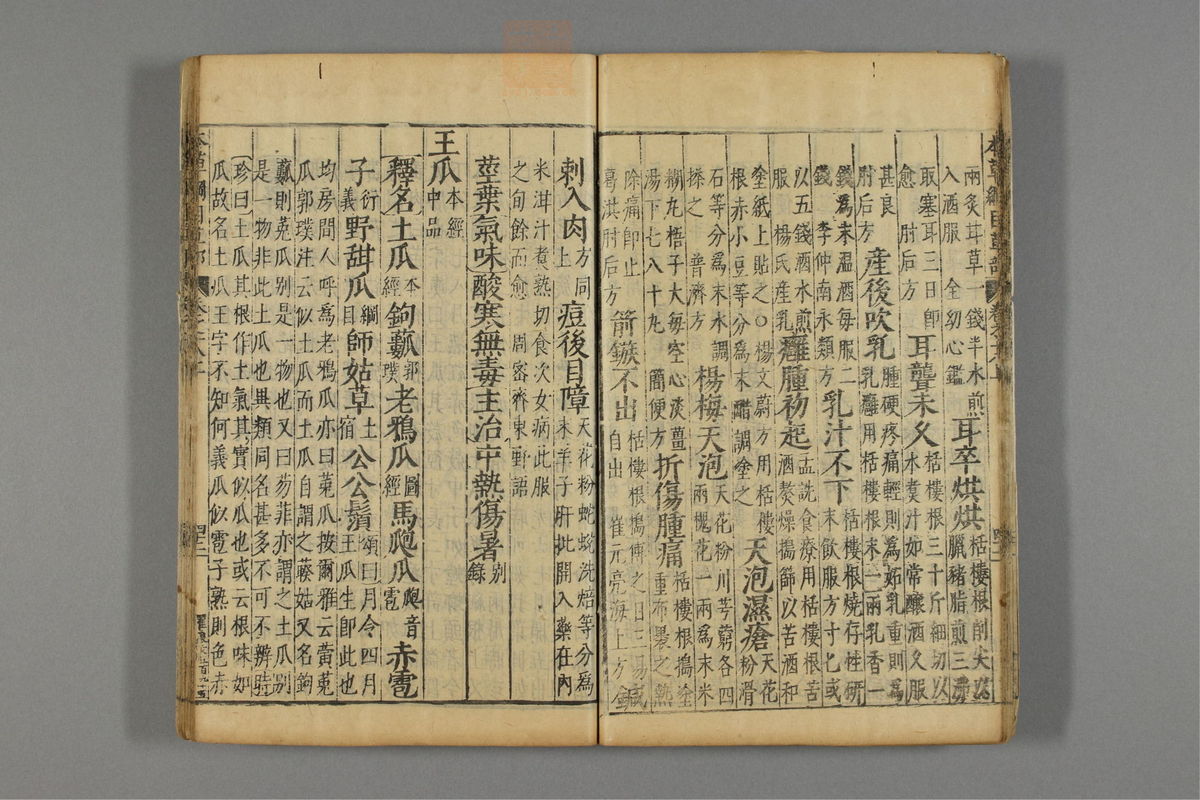 本草綱目草部 卷之十八上 四十二
兩炙甘草一錢半水煎入酒服 全幼心鑑 耳卒烘烘 栝樓根削尖以臘豬脂煎三沸
取塞耳三日即愈 肘后方 耳聾未久 栝樓根三十斤細切以水煮汁如常釀酒久服
甚良 肘后方 產後吹乳 乳腫硬疼痛輕則為妬乳重則為乳癰用栝樓根末一兩乳香一
錢為末溫酒每服二錢 李仲南永類方 乳汁不下 栝樓根燒存性研末飲服方寸匕或
以五錢酒水煎服 楊氏產乳 癰腫初起 孟詵食療用栝樓根苦酒熬燥擣篩以苦酒和
塗紙上貼之○楊文蔚方用栝樓根赤小豆等分為末醋調塗之 天泡濕瘡 天花粉滑
石等分為末水調搽之 普濟方 楊梅天泡 天花粉川芎藭各四兩槐花一兩為末米
糊丸梧子大每空心淡薑湯下七八十丸 簡便方 折傷腫痛 栝樓根擣塗重布裹之熱
除痛即止 葛洪肘后方 箭鏃不出 栝樓根擣傅之日三易自出 崔元亮海上方 鍼
刺入肉 方同上 痘後目障 天花粉蛇蛻洗焙等分為末羊子肝批開入藥在內
米泔汁煮熟切食次女病此服之旬餘而愈 周密齊東野語
莖葉氣味酸寒無毒主治中熱傷暑 別錄
王瓜 本經中品
釋名土瓜 本經 鉤𤬓 郭璞 老鴉瓜 圖經 馬瓟瓜 瓟音雹 赤雹
子 衍義 野甜瓜 綱目 師姑草 土宿 公公鬚 頌曰月令四月王瓜生即此也
均房間人呼為老鴉瓜亦曰菟瓜按爾雅云黃菟瓜郭璞注云似土瓜而土瓜自謂之藤姑又名鉤
𤬓則菟瓜別是一物也又曰芴菲亦謂之土瓜別是一物非此土瓜也異類同名甚多不可不辨時
珍曰土瓜其根作土氣其實似瓜也或云根味如瓜故名土瓜王字不知何義瓜似雹子熟則色赤